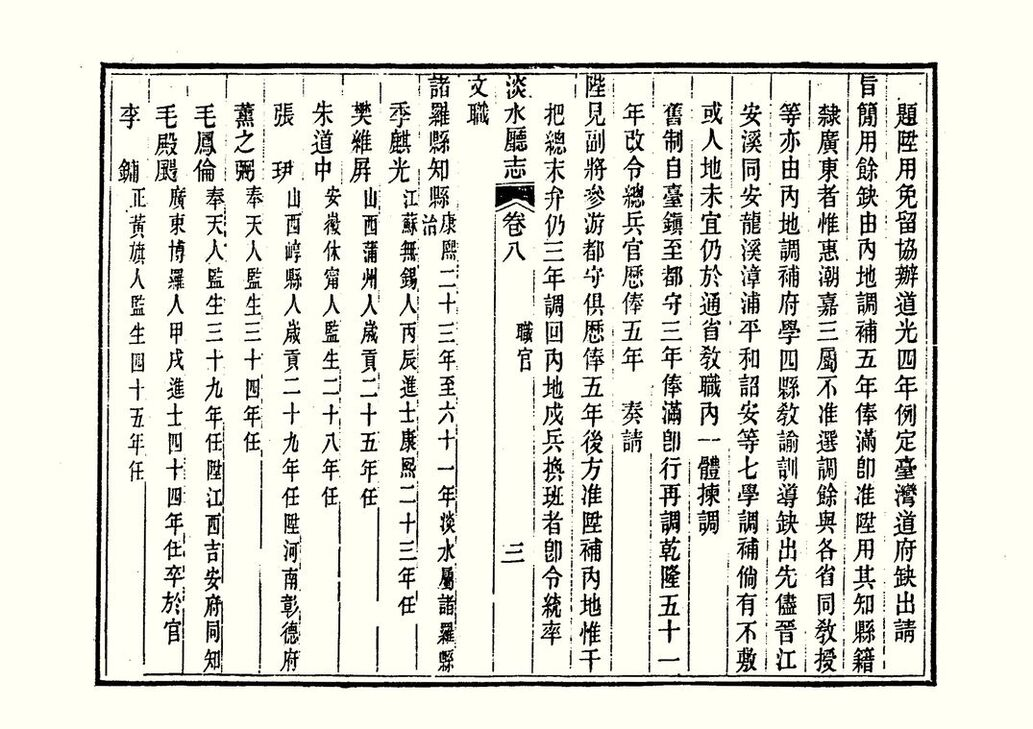 題陞用免留協辦道光四年例定臺灣道府缺出請
旨簡用餘缺由內地調補五年俸滿卽准陞用其知縣籍
隸廣東者惟惠潮嘉三屬不准選調餘與各省同教授
等亦由內地調補府學四縣教諭訓導缺出先儘晉江
安溪同安龍溪漳浦平和詔安等七學調補倘有不敷
或人地未宜仍於通省教職內一體揀調
舊制自臺鎮至都守三年俸滿卽行再調乾隆五十一
年改令總兵官歷俸五年　奏請
陛見副將參游都守俱歷俸五年後方准陞補內地惟千
把總末弁仍三年調回內地戍兵換班者卽令統率
淡水廳志　卷八　職官　三
文職
諸羅縣知縣康熙二十三年至六十一年淡水屬諸羅縣治
季麒光　江蘇無錫人丙辰進士康熙二十三年任
樊維屏　山西蒲州人歲貢二十五年任
朱道中　安徽休甯人監生二十八年任
張　㺬　山西崞縣人歲貢二十九年任陞河南彰德府
董之弼　奉天人監生三十四年任
毛鳳倫　奉天人監生三十九年任陞江西吉安府同知
毛殿颺　廣東博羅人甲戌進士四十四年任卒於官
李　鏞　正黃旗人監生四十五年任